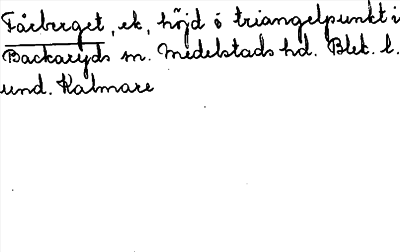 Fårberget, ek, höjd o triangelpunkt i
Backaryds sn. Medelstads hd. Blek. l.
und. Kalmare